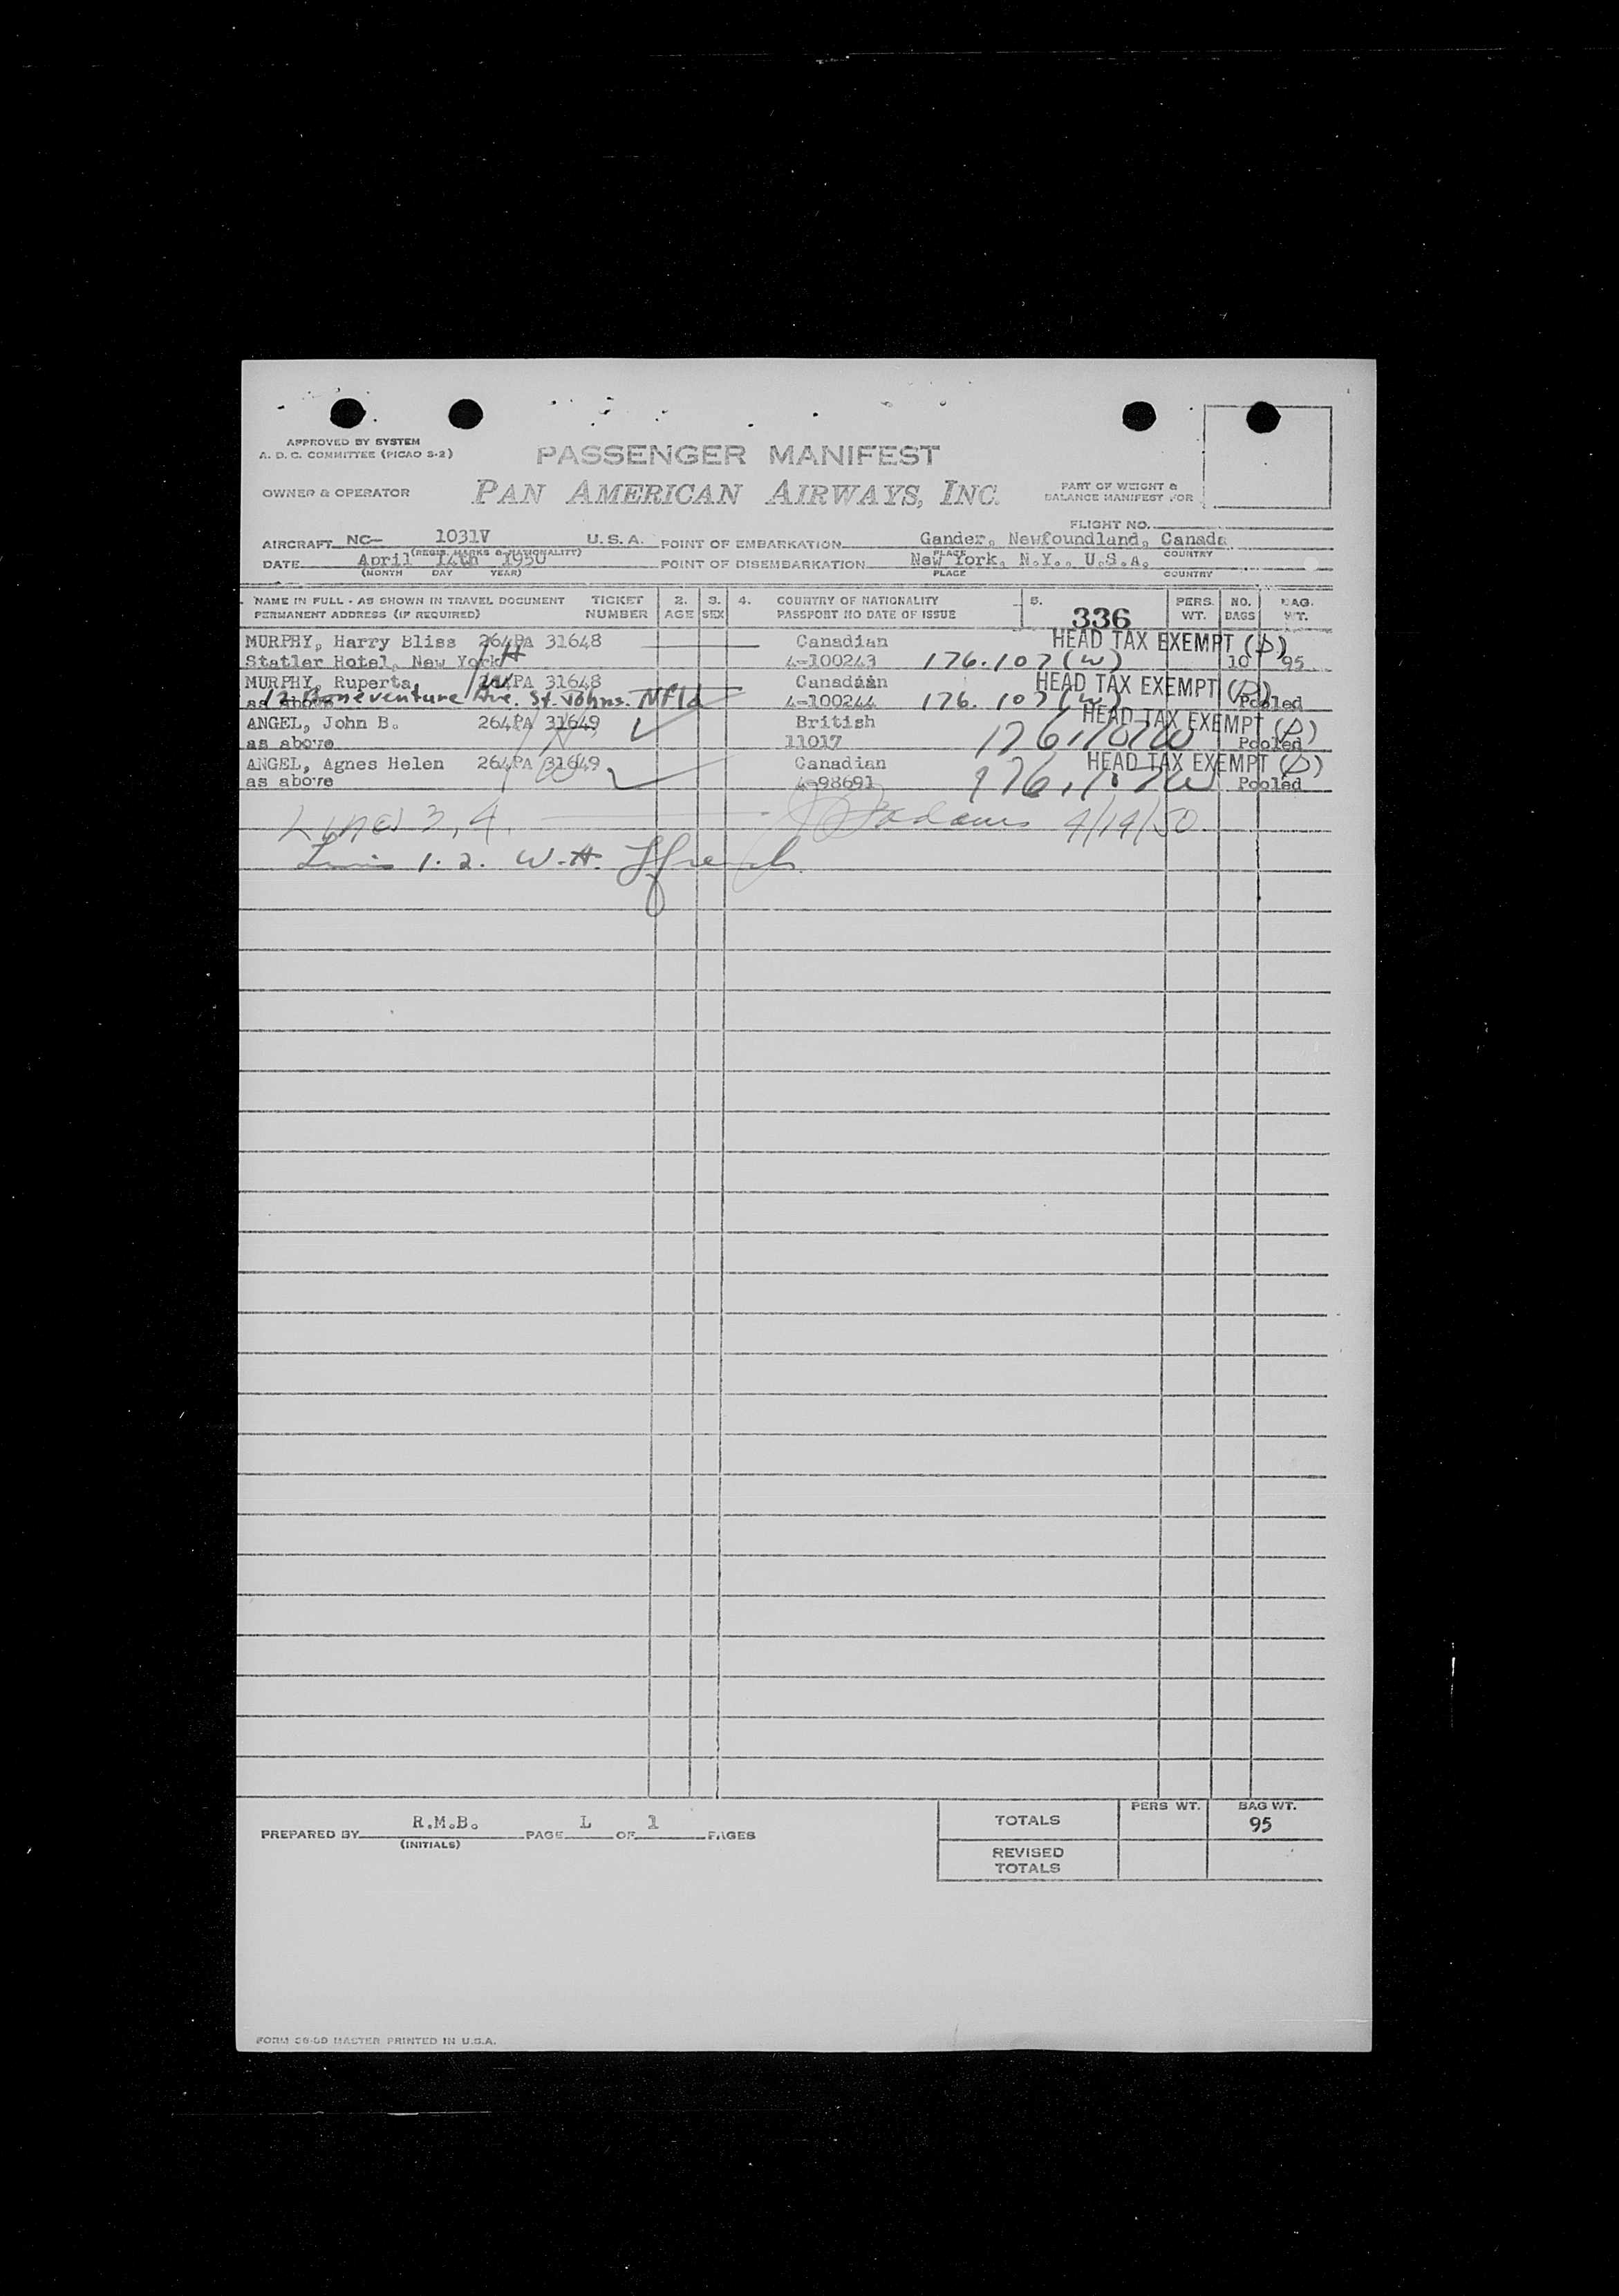 APPROVED BY SYSTEM
A. D. C. COMMITTEE (PICAO S-2)
PASSENGER MANIFEST
OWNER & OPERATOR
PAN AMERICAN AIRWAYS, INC.
PART OF WEIGHT &
BALANCE MANIFEST FOR
FLIGHT NO.
AIRCRAFT NC- 1031V U.S.A. POINT OF EMBARKATION Gander, Newfoundland, Canada
(REGIS. MARKS & NATIONALITY) PLACE COUNTRY
DATE April 14th 1950 POINT OF DISEMBARKATION New York, N.Y., U.S.A.
(MONTH DAY YEAR) PLACE COUNTRY
NAME IN FULL - AS SHOWN IN TRAVEL DOCUMENT TICKET 2. 3. 4. COUNTRY OF NATIONALITY 5. PERS. NO. BAG.
PERMANENT ADDRESS (IF REQUIRED) NUMBER AGE SEX PASSPORT NO DATE OF ISSUE 336 WT. BAGS WT.
MURPHY, Harry Bliss 264PA 31648 Canadian HEAD TAX EXEMPT (D)
Statler Hotel, New York 4-100243 176.107(W) 10 95
MURPHY, Ruperta 264PA 31648 Canadian HEAD TAX EXEMPT (D)
as above 12 Boneventure Ave. St. Johns. Nfld 4-100244 176.107(W) Pooled
ANGEL, John B. 264PA 31649 British HEAD TAX EXEMPT (D)
as above 11017 176.107W Pooled
ANGEL, Agnes Helen 264PA 31649 Canadian HEAD TAX EXEMPT (D)
as above 4-98691 176.107W Pooled
Lines 3, 4. Adams 4/14/50
1. 2. W.H.
PREPARED BY R.M.B. PAGE L OF 1 PAGES
(INITIALS)
PERS WT. BAG WT.
TOTALS 95
REVISED
TOTALS
FORM MASTER PRINTED IN U.S.A.